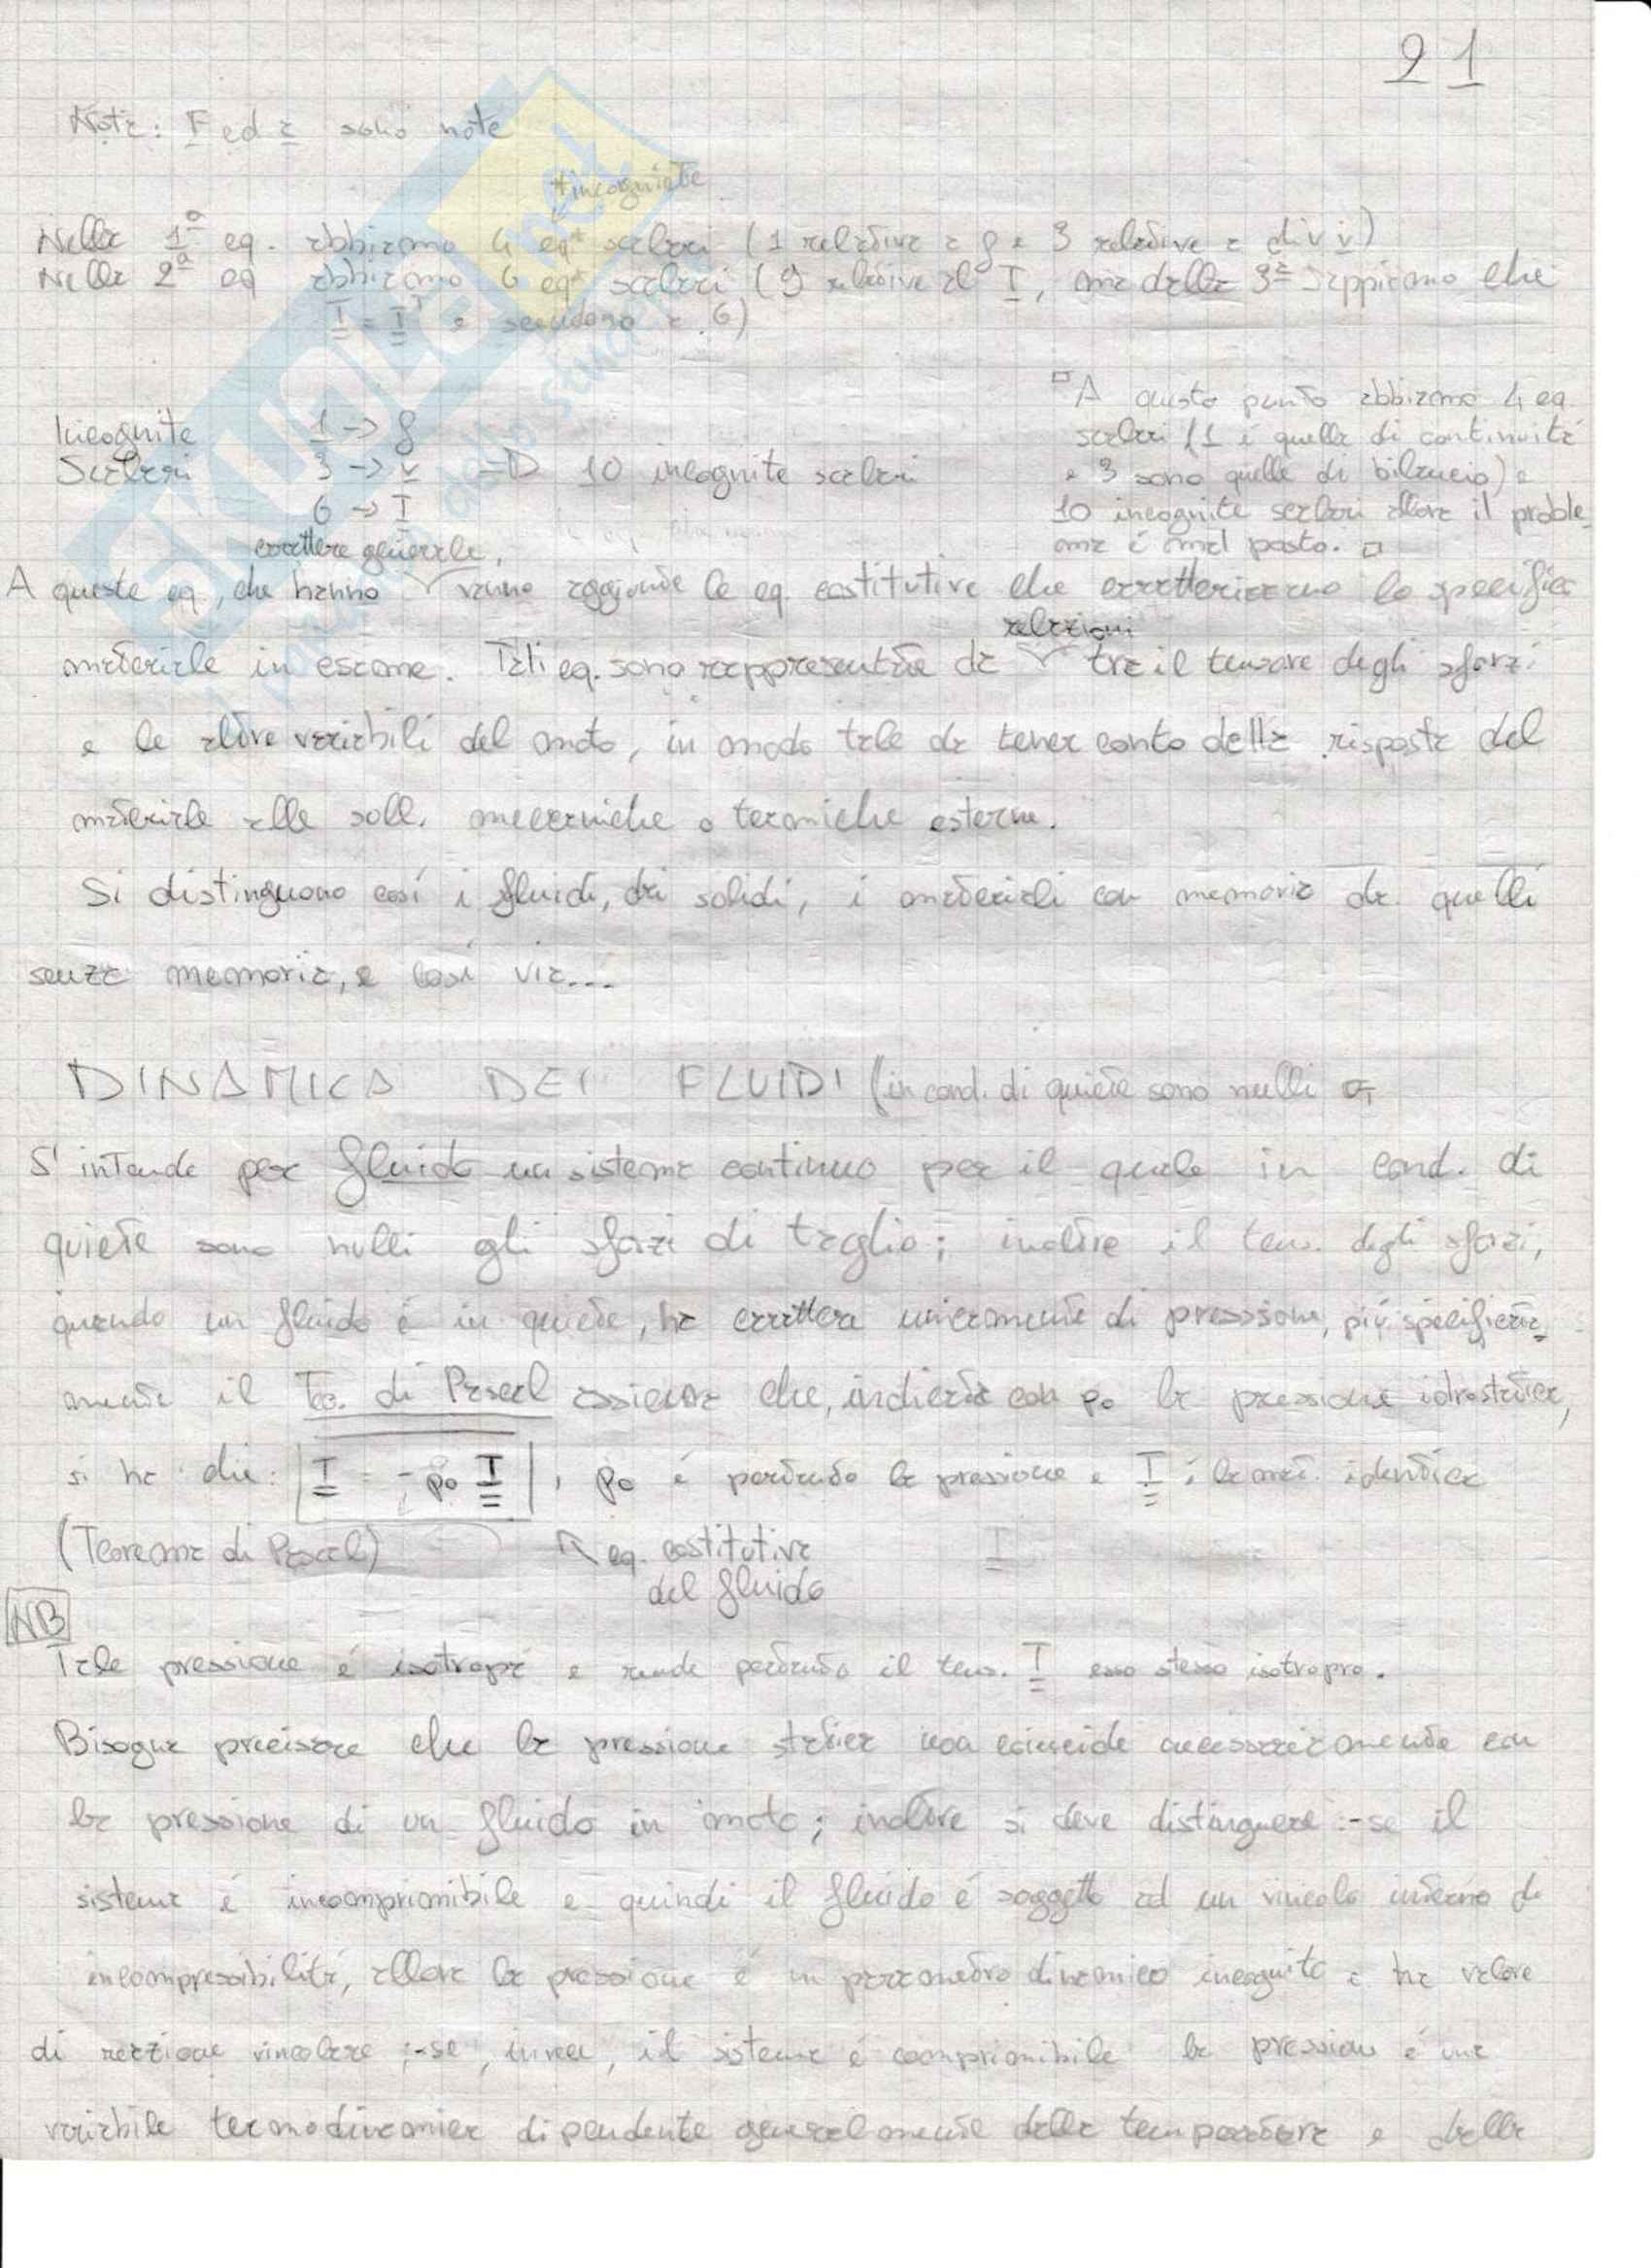 91
Nota: F ed a sono note
*incognite
Nella 1ª eq. abbiamo 4 eq* scalari (1 relativa a ρ e 3 relative a div v)
Nella 2ª eq abbiamo 6 eq* scalari (9 relative al T, ma dalla 3ª sappiamo che
T = Tᵀ e scendono a 6)
Incognite 1 -> ρ
Scalari 3 -> v => 10 incognite scalari
6 -> T
□ A questo punto abbiamo 4 eq.
scalari (1 è quella di continuità
e 3 sono quelle di bilancio) e
10 incognite scalari allora il proble-
ma è mal posto. □
carattere generale,
A queste eq, che hanno √ vanno aggiunte le eq. costitutive che caratterizzano lo specifico
relazioni
materiale in esame. Tali eq. sono rappresentate da √ tra il tensore degli sforzi
e le altre variabili del moto, in modo tale da tener conto della risposta del
materiale alle soll. meccaniche o termiche esterne.
Si distinguono così i fluidi, dai solidi, i materiali con memoria da quelli
senza memoria, e così via...
DINAMICA DEI FLUIDI (in cond. di quiete sono nulli σT
S'intende per fluido un sistema continuo per il quale in cond. di
quiete sono nulli gli sforzi di taglio; inoltre il tens. degli sforzi,
quando un fluido è in quiete, ha carattere unicamente di pressione, più specifica-
mente il Teo. di Pascal assicura che, indicata con p₀ la pressione idrostatica,
si ha che: T = - p₀ I , p₀ è pertanto la pressione e I è la mat. identica
(Teorema di Pascal) eq. costitutiva
del fluido
NB
Tale pressione è isotropa e rende pertanto il tens. T esso stesso isotropo.
Bisogna precisare che la pressione statica non coincide necessariamente con
la pressione di un fluido in moto; inoltre si deve distinguere :-se il
sistema è incomprimibile e quindi il fluido è soggetto ad un vincolo interno di
incompressibilità, allora la pressione è un parametro dinamico incognito e ha valore
di reazione vincolare ;-se, invece, il sistema è comprimibile la pressione è una
variabile termodinamica dipendente generalmente dalla temperatura e dalla